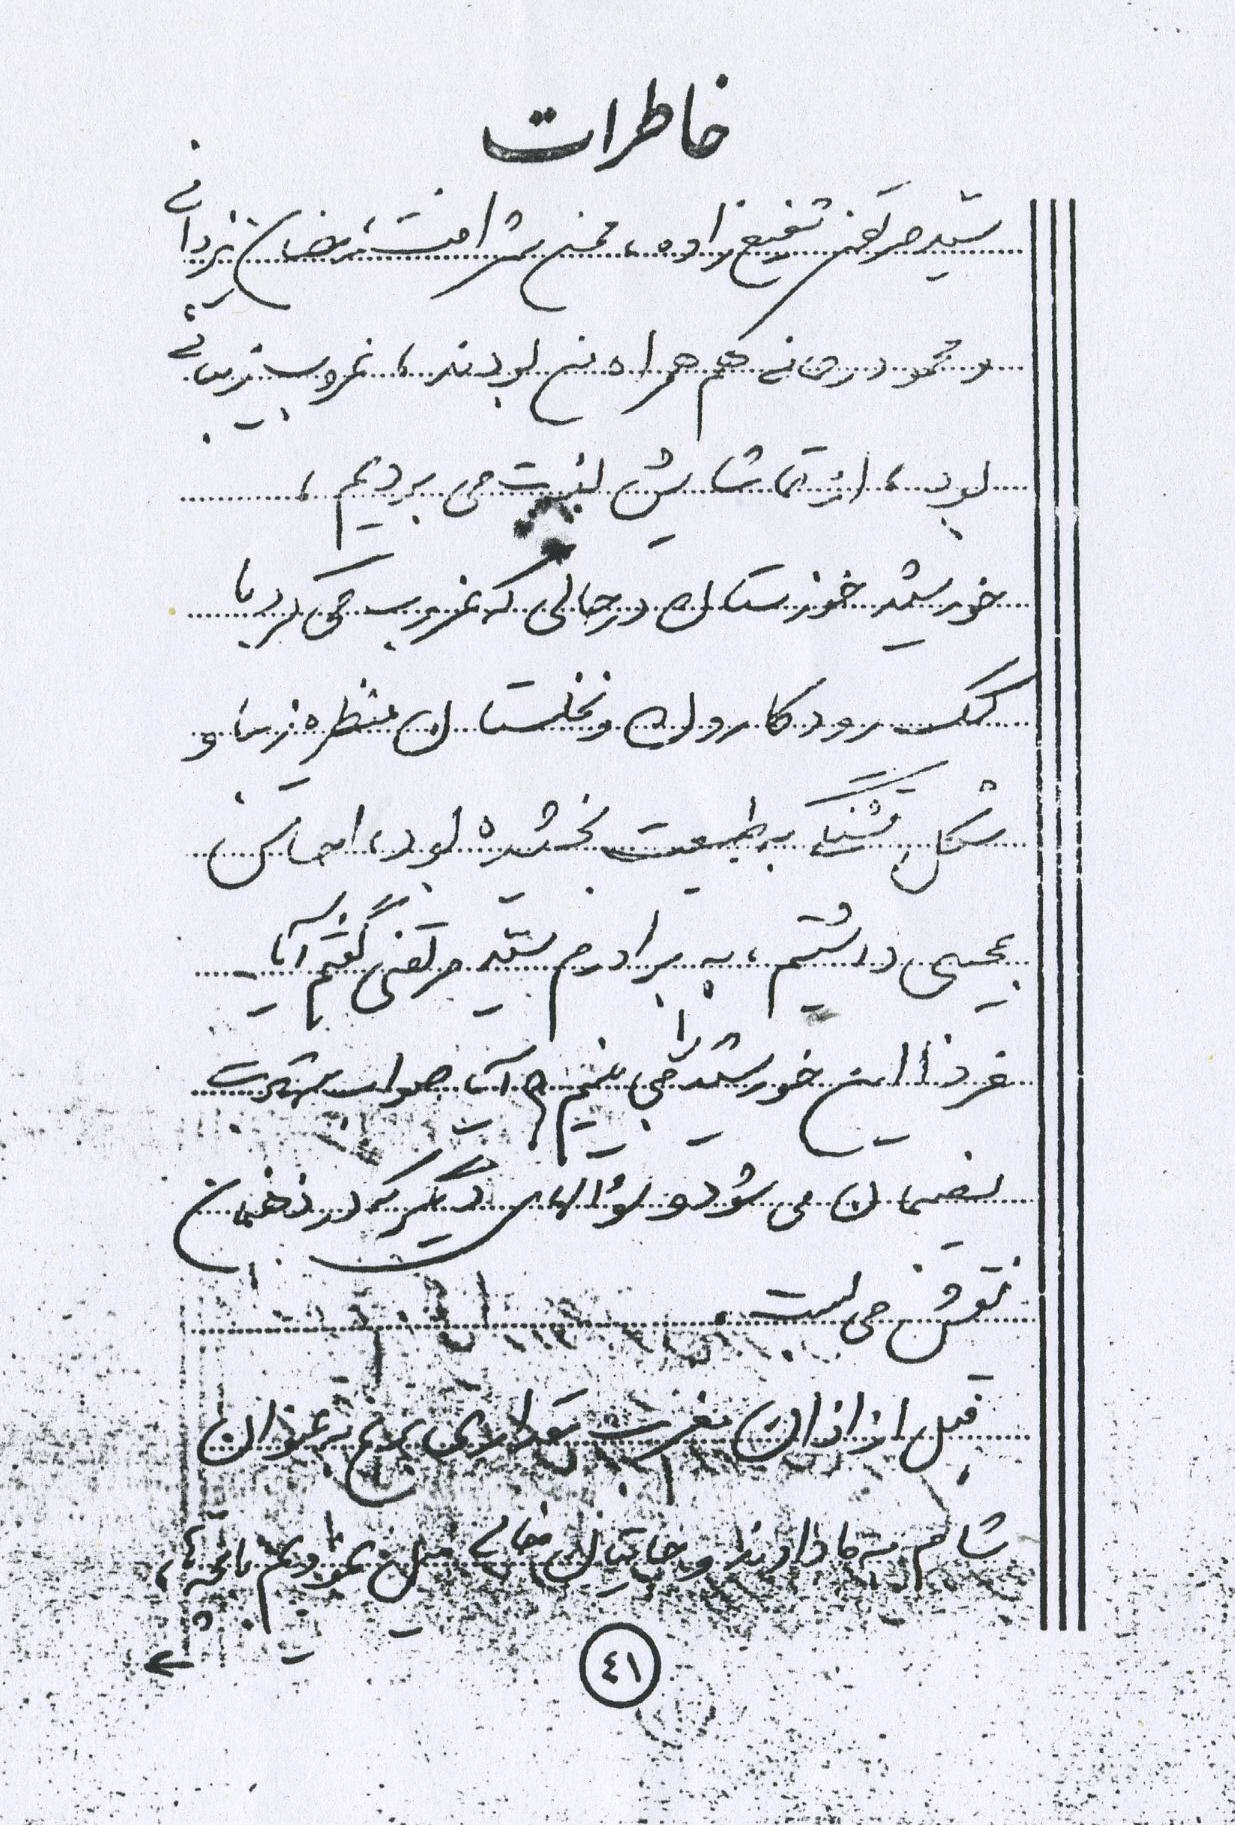 خاطرات
سیّد مرتضی شفیع زاده، محسن شرافت، رمضان یزدانی
و محمود ریحانه هم همراه من بودند، غروب زیبائی
بود، از تماشایش لذت می بردیم،
خورشید خوزستان در حالی که غروب می کرد با
کمک رود کارون و نخلستان منظره زیبا و
شکل قشنگی به طبیعت بخشیده بود، احساس
عجیبی داشتیم، به برادرم سیّد مرتضی گفتم آیا
فردا این خورشید را می بینیم و آیا جواب شهادت
نصیبمان می شود و سؤالهای دیگر که در ذهنمان
نقش می بست.
قبل از اذان مغرب مقداری برنج به عنوان
شام به ما دادند و خیلی میل نمودیم
٤١